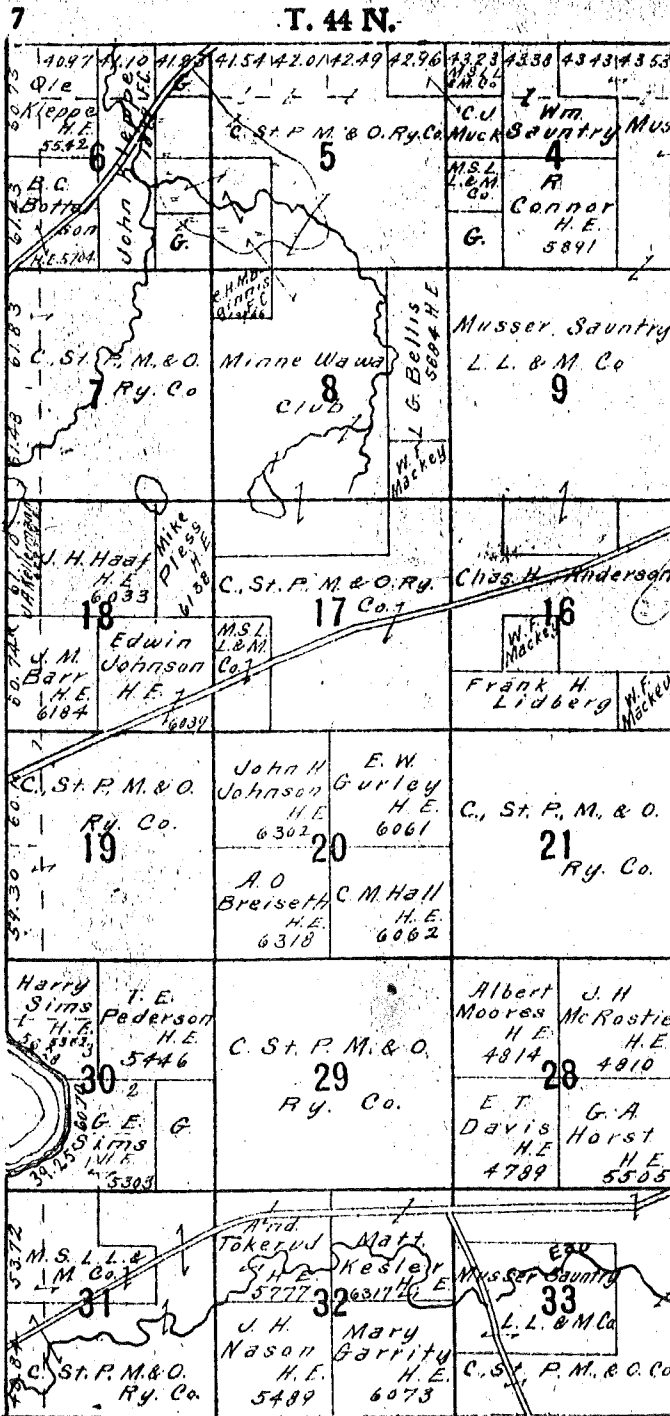 7
T. 44 N.
40.97 41.10 41.23 41.54 42.01 42.49 42.96 43.23 43.38 43.43 43.53
60.73
Ole
Kleppe
H.E.
5542
6
John Kleppe
F.C.
G.
B.C.
Bottol
son
H.E. 5704
61.23
G.
C. St. P. M. & O. Ry. Co.
5
M.S.L.L.
& M. Co
C.J.
Muck
Wm.
Sauntry
4
Mus
M.S.L.
L. & M.
Co.
G.
R
Connor
H.E.
5891
61.83
61.48
C. St. P. M. & O.
7
Ry. Co
F.C.
Minne Wawa
8
Club
L G. Bellis
5684 H E
W. F.
Mackey
Musser Sauntry
L. L. & M. Co
9
61.10
60.74
J. H. Haaf
H. E
6033
18
Mike
Pless
H E
6138
J. M.
Barr
H. E.
6184
Edwin
Johnson
H. E.
6039
C., St. P. M. & O. Ry.
17
Co.
M.S.L.
L. & M.
Co.
Chas. H. Anderson
16
W. F.
Mackey
Frank H.
Lidberg
W. F.
Mackey
59.30
C., St. P. M. & O.
Ry. Co.
19
John H
Johnson
H E
6302
E. W.
Gurley
H. E.
6061
20
A. O
Breiseth
H. E.
6318
C. M. Hall
H. E.
6062
C., St. P., M., & O.
21
Ry. Co.
Harry
Sims
H. E.
3
T. E.
Pederson
H.E.
5446
30
2
G. E.
Sims
H E
5303
39.25
G
C. St. P. M. & O.
29
Ry. Co.
Albert
Moores
H E
4814
J. H
McRostie
H. E
4810
28
E T
Davis
H.E
4789
G. A
Horst
H E
5505
53.72
M. S. L. L. &
M Co.
31
C. St. P. M. & O.
Ry. Co.
And.
Tokerud
H E.
5777
Matt.
Kesler
6317 H E.
32
J. H.
Nason
H. E.
5489
Mary
Garrity
H. E.
6073
Eau
Musser Sauntry
33
L. L. & M. Co
C., St., P. M., & O. Co